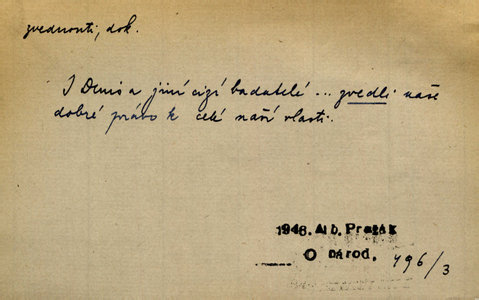 zvednouti, dok.
I Denis a jiní cizí badatelé ... zvedli naše
dobré právo k celé naší vlasti.
1946. Alb. Pražák
O národ. 496/3